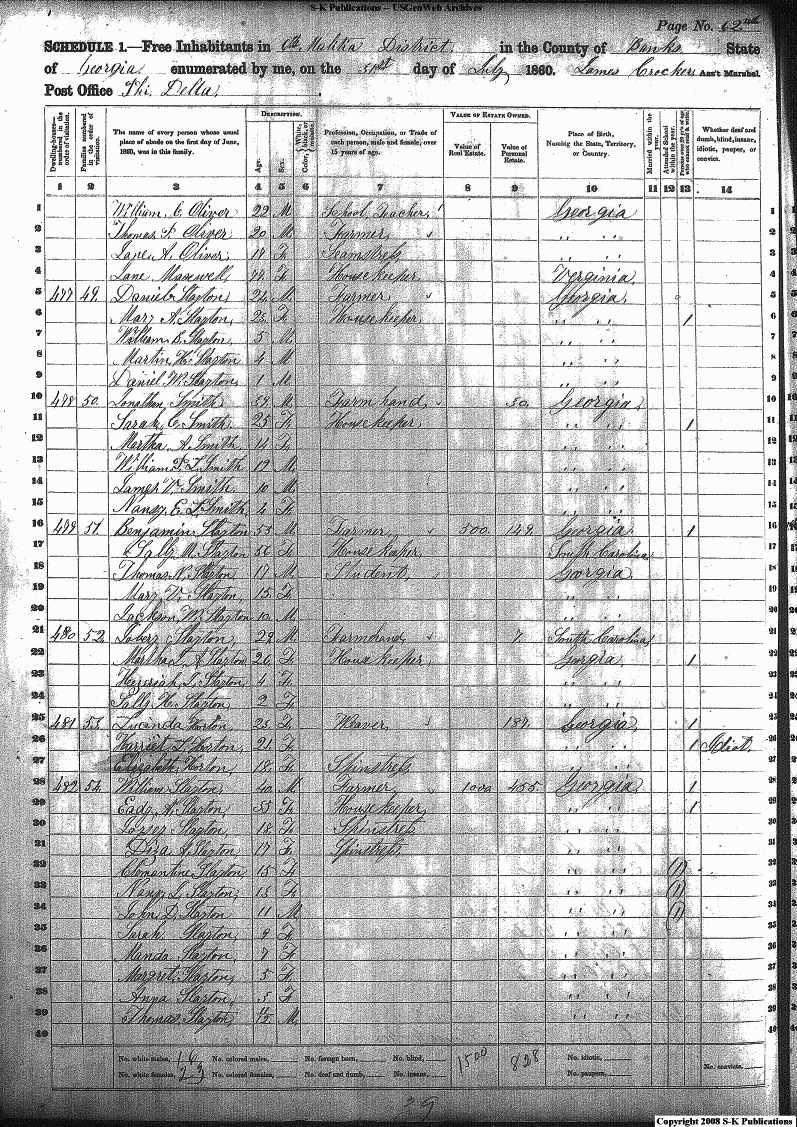 S-K Publications – USGenWeb Archives
Page No. 62nd
SCHEDULE 1.—Free Inhabitants in 6th Militia District in the County of Banks State
of Georgia enumerated by me, on the 31st day of July 1860. James Crocker Ass't Marshal.
Post Office Phi. Delta.
Dwelling-houses—numbered in the order of visitation.
Families numbered in the order of visitation.
The name of every person whose usual place of abode on the first day of June, 1860, was in this family.
DESCRIPTION.
Age.
Sex.
Color, White, black, or mulatto.
Profession, Occupation, or Trade of each person, male and female, over 15 years of age.
VALUE OF ESTATE OWNED.
Value of Real Estate.
Value of Personal Estate.
Place of Birth, Naming the State, Territory, or Country.
Married within the year.
Attended School within the year.
Persons over 20 y'rs of age who cannot read & write.
Whether deaf and dumb, blind, insane, idiotic, pauper, or convict.
1 2 3 4 5 6 7 8 9 10 11 12 13 14
1 William C. Oliver 22 M School Teacher Georgia 1
2 Thomas Oliver 20 M Farmer " " 2
3 Jane A. Oliver F Seamstress " " 3
4 Jane Maxwell F House Keeper Verginia 4
5 477 49 Daniel Slayton 24 M Farmer Georgia 5
6 Mary A. Slayton F House keeper " " 1 6
7 William Slayton 5 M " " 7
8 Martin Slayton 4 M " " 8
9 Daniel W. Slayton 1 M " " 9
10 478 50 Jonathan Smith 59 M Farm hand 50 Georgia 10
11 Sarah C. Smith 25 F House keeper " " 1 11
12 Martha A. Smith 14 F " " 12
13 William Smith M " " 13
14 James Smith 10 M " " 14
15 Nancy E. Smith 4 F " " 15
16 479 51 Benjamin Slayton 53 M Farmer 500 149 Georgia 1 16
17 Sally Slayton 56 F House keeper South Carolina 17
18 Thomas Slayton 17 M Student Georgia 18
19 Mary Slayton 15 F " " 19
20 Jackson Slayton 10 M " " 20
21 480 52 Slayton 29 M Farm hand 7 South Carolina 21
22 Martha Slayton 26 F House keeper Georgia 1 22
23 Slayton 4 F " " 23
24 Sally Slayton 2 F " " 24
25 481 53 Lucinda Horton 25 F Weaver 187 Georgia 1 25
26 Harriet Horton 21 F " " 1 Idiot 26
27 Elizabeth Horton 18 F Spinstress " " 27
28 482 54 William Slayton 40 M Farmer 1000 455 Georgia 1 28
29 Slayton 35 F House keeper " " 1 29
30 Slayton 18 F Spinstress " " 30
31 Slayton 17 F Spinstress " " 31
32 Clemantine Slayton 15 F " " 1 32
33 Nancy L. Slayton 13 F " " 1 33
34 John D. Slayton 11 M " " 1 34
35 Sarah Slayton 9 F " " 35
36 Manda Slayton 7 F " " 36
37 Margret Slayton 5 F " " 37
38 Anna Slayton F " " 38
39 Thomas Slayton M " " 39
40 40
No. white males, 16 No. colored males, No. foreign born, No. blind, 1500 828 No. idiotic,
No. white females, 23 No. colored females, No. deaf and dumb, No. insane, No. paupers, No. convicts,
39
Copyright 2008 S-K Publications